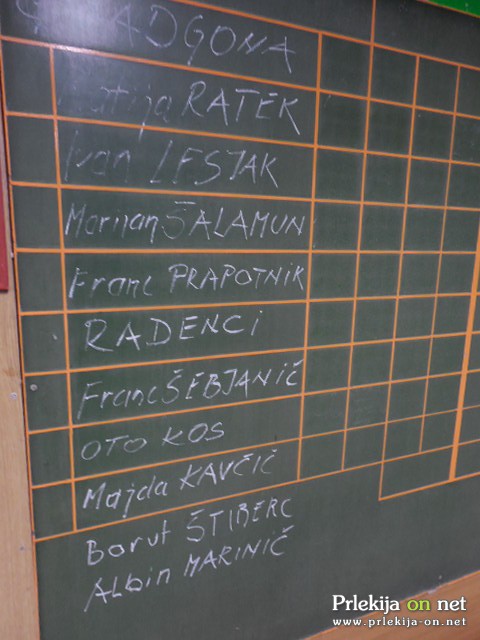 RADGONA
Matija RATEK
Ivan LESJAK
Marijan ŠALAMUN
Franc PRAPOTNIK
RADENCI
Franc ŠEBJANIČ
OTO KOS
Majda KAVČIČ
Borut ŠTIBERC
Albin MARINIČ
Prlekija on net
www.prlekija-on.net